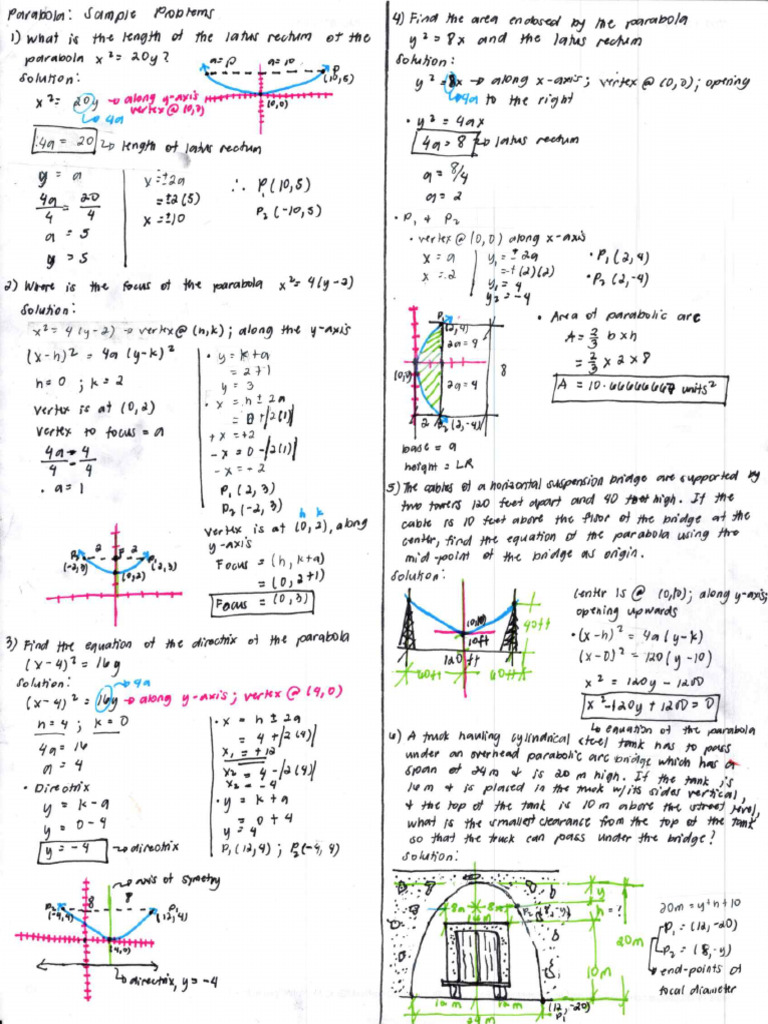 Parabola: Sample Problems
1) What is the length of the latus rectum of the
parabola x² = 20y?
Solution:
x² = 20y → along y-axis
vertex @ (0,0)
4a
4a = 20 ↳ length of latus rectum
a = 10
(10,5)
(0,0)
y = a
4a/4 = 20/4
a = 5
y = 5
x = ±2a
= ±2(5)
x = ±10
∴ P(10,5)
P₂(-10,5)
2) Where is the focus of the parabola x² = 4(y-2)
Solution:
x² = 4(y-2) → vertex @ (h,k); along the y-axis
(x-h)² = 4a(y-k)²
h = 0 ; k = 2
vertex is at (0,2)
vertex to focus = a
4a/4 = 4/4
• a = 1
• y = k+a
= 2+1
y = 3
• x = h ± 2a
= 0 + |2(1)|
+x = +2
-x = 0 - |2(1)|
-x = -2
P₁(2,3)
P₂(-2,3)
h k
vertex is at (0,2), along
y-axis
Focus = (h, k+a)
= (0, 2+1)
Focus = (0,3)
P₂ 2 F 2 P₁
(-2,3) (2,3)
(0,2)
3) Find the equation of the directrix of the parabola
(x-4)² = 16y
Solution:
→ 4a
(x-4)² = 16y → along y-axis; vertex @ (4,0)
h = 4 ; k = 0
4a = 16
a = 4
• Directrix
y = k-a
y = 0-4
y = -4 → directrix
• x = h ± 2a
= 4 + |2(4)|
x₁ = +12
x₂ = 4 - |2(4)|
x₂ = -4
• y = k+a
= 0+4
y = 4
P₁(12,4) ; P₂(-4,4)
→ axis of symetry
8 8
P₂ P₁
(-4,4) (12,4)
(4,0)
↳ directrix, y = -4
4) Find the area enclosed by the parabola
y² = 8x and the latus rectum
Solution:
y² = 8x → along x-axis; vertex @ (0,0); opening
4a to the right
• y² = 4ax
4a = 8 ↳ latus rectum
a = 8/4
a = 2
• P₁ & P₂
• vertex @ (0,0) along x-axis
x = a
x = 2
y₁ = ±2a
= ±(2)(2)
y₁ = 4
y₂ = -4
• P₁(2,4)
• P₂(2,-4)
P₁
(2,4)
2a = 4
(0,0)
8
2a = 4
2
P₂(2,-4)
base = a
height = LR
• Area of parabolic arc
A = 2/3 b x h
= 2/3 x 2 x 8
A = 10.66666667 units²
5) The cables of a horizontal suspension bridge are supported by
two towers 120 feet apart and 40 feet high. If the
cable is 10 feet above the floor of the bridge at the
center, find the equation of the parabola using the
mid-point of the bridge as origin.
Solution:
(0,10)
10ft
40ft
120ft
60ft 60ft
center is @ (0,10); along y-axis;
opening upwards
• (x-h)² = 4a(y-k)
(x-0)² = 120(y-10)
x² = 120y - 1200
x² - 120y + 1200 = 0
↳ equation of the parabola
6) A truck hauling cylindrical steel tank has to pass
under an overhead parabolic arc bridge which has a
span of 24m & is 20m high. If the tank is
16m & is placed in the truck w/its sides vertical,
& the top of the tank is 10m above the street level,
what is the smallest clearance from the top of the tank
so that the truck can pass under the bridge?
Solution:
y
8m 8m P₂(8,-y)
16m
h = ?
20m
10m
12m 12m
(12,-20)
P₁
24m
20m = y+h+10
P₁ = (12,-20)
P₂ = (8,-y)
↳ end-points of
focal diameter